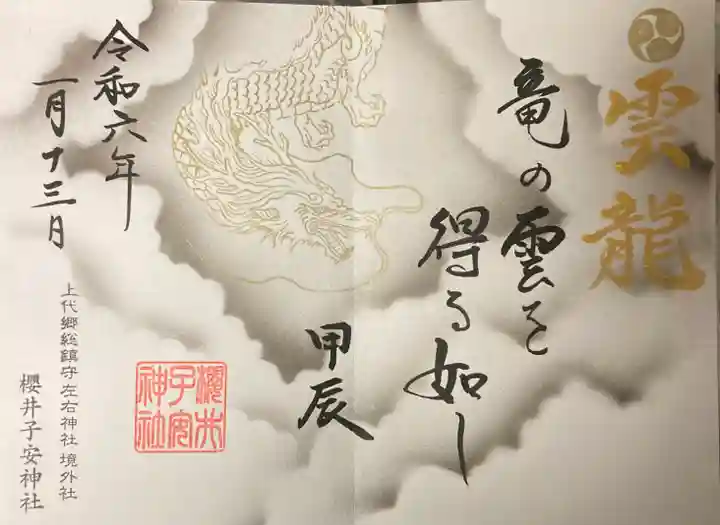 雲龍
竜の雲を
得る如し
甲辰
櫻井
子安
神社
令和六年
一月十三日
上代郷総鎮守左右神社 境外社
櫻井子安神社